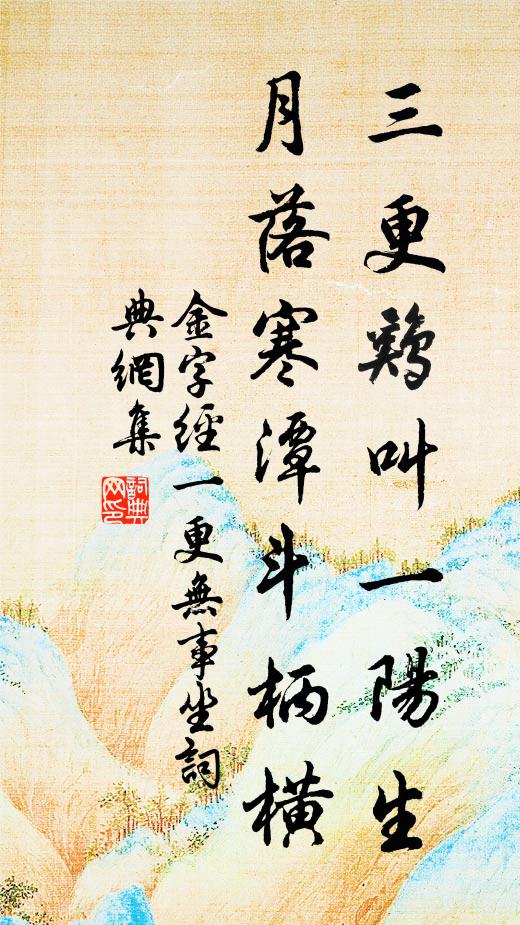 三更鷄叫一陽生
月落寒潭斗柄橫
金字經一更無事坐詞
典網集
詞典網印